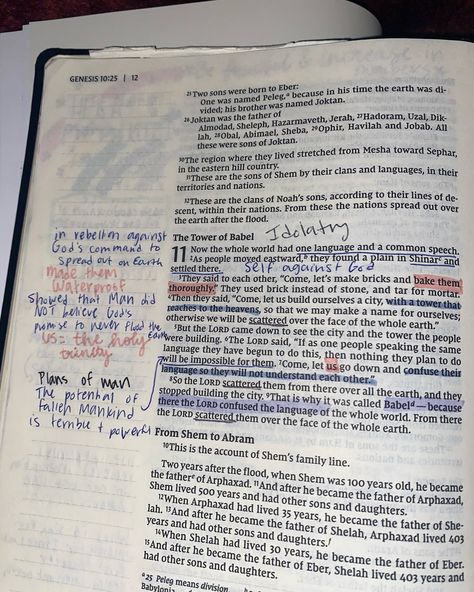 GENESIS 10:25 | 12
25Two sons were born to Eber:
One was named Peleg,a because in his time the earth was di-
vided; his brother was named Joktan.
26Joktan was the father of
Almodad, Sheleph, Hazarmaveth, Jerah, 27Hadoram, Uzal, Dik-
lah, 28Obal, Abimael, Sheba, 29Ophir, Havilah and Jobab. All
these were sons of Joktan.
30The region where they lived stretched from Mesha toward Sephar,
in the eastern hill country.
31These are the sons of Shem by their clans and languages, in their
territories and nations.
32These are the clans of Noah's sons, according to their lines of de-
scent, within their nations. From these the nations spread out over
the earth after the flood.
The Tower of Babel
Idolatry
11 Now the whole world had one language and a common speech.
2As people moved eastward,b they found a plain in Shinarc and
settled there.
Self against God
3They said to each other, "Come, let's make bricks and bake them
thoroughly." They used brick instead of stone, and tar for mortar.
4Then they said, "Come, let us build ourselves a city, with a tower that
reaches to the heavens, so that we may make a name for ourselves;
otherwise we will be scattered over the face of the whole earth."
5But the LORD came down to see the city and the tower the people
were building. 6The LORD said, "If as one people speaking the same
language they have begun to do this, then nothing they plan to do
will be impossible for them. 7Come, let us go down and confuse their
language so they will not understand each other."
8So the LORD scattered them from there over all the earth, and they
stopped building the city. 9That is why it was called Babeld—because
there the LORD confused the language of the whole world. From there
the LORD scattered them over the face of the whole earth.
in rebellion against
God's command to
spread out on Earth
made them
Waterproof
Showed that Man did
NOT believe God's
promise to never flood the
Earth
us = the holy
trinity
Plans of man
The potential of
fallen mankind
is terrible + powerful
From Shem to Abram
10This is the account of Shem's family line.
Two years after the flood, when Shem was 100 years old, he became
the fathere of Arphaxad. 11And after he became the father of Arphaxad,
Shem lived 500 years and had other sons and daughters.
12When Arphaxad had lived 35 years, he became the father of She-
lah. 13And after he became the father of Shelah, Arphaxad lived 403
years and had other sons and daughters.f
14When Shelah had lived 30 years, he became the father of Eber.
15And after he became the father of Eber, Shelah lived 403 years and
had other sons and daughters.
a25 Peleg means division
Babylonia